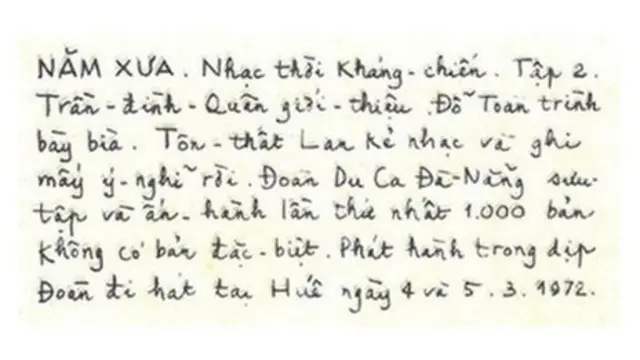 NĂM XƯA. Nhạc thời Kháng-chiến. Tập 2.
Trần-đình-Quân giới-thiệu. Đỗ Toàn trình
bày bìa. Tôn-thất Lan kẻ nhạc và ghi
mấy ý-nghĩ rời. Đoàn Du Ca Đà-Nẵng sưu-
tập và ấn-hành lần thứ nhất 1.000 bản
không có bản đặc-biệt. Phát hành trong dịp
Đoàn đi hát tại Huế ngày 4 và 5.3.1972.